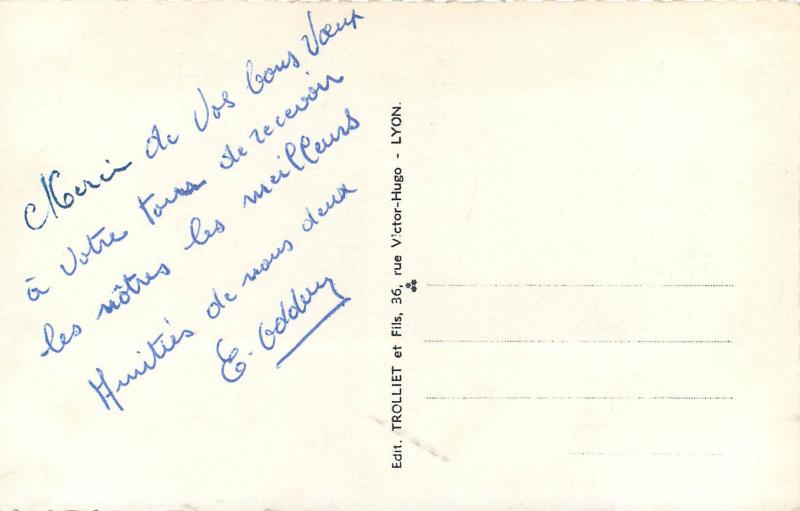 Merci de Vos bons Vœux
à Votre tour de recevoir
les nôtres les meilleurs
Amitiés de nous deux
E.
Edit. TROLLIET et Fils, 36, rue Victor-Hugo - LYON.